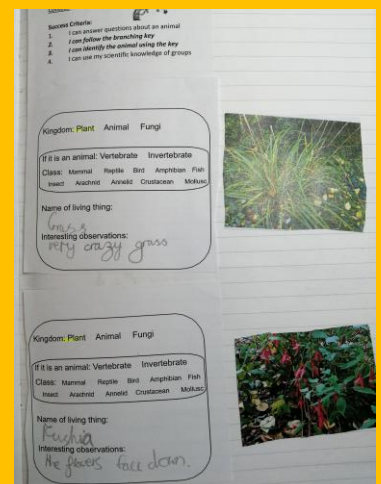 Success Criteria:
1. I can answer questions about an animal
2. I can follow the branching key
3. I can identify the animal using the key
4. I can use my scientific knowledge of groups
Kingdom: Plant Animal Fungi
If it is an animal: Vertebrate Invertebrate
Class: Mammal Reptile Bird Amphibian Fish
Insect Arachnid Annelid Crustacean Mollusc
Name of living thing:
Grass
Interesting observations:
very crazy grass
Kingdom: Plant Animal Fungi
If it is an animal: Vertebrate Invertebrate
Class: Mammal Reptile Bird Amphibian Fish
Insect Arachnid Annelid Crustacean Mollusc
Name of living thing:
Fuchia
Interesting observations:
the flowers face down.